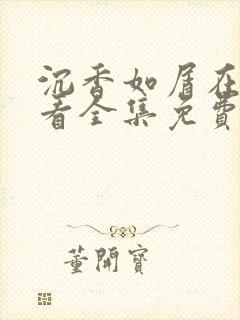 沉香如屑在
看全集免費
董開寶